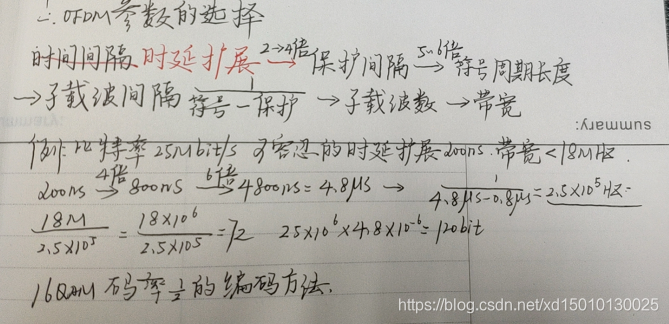 二. OFDM参数的选择
时间间隔 时延扩展 2→4倍→ 保护间隔 5~6倍→ 符号周期长度
→子载波间隔 1/符号-保护 →子载波数 →带宽
summary:
例:比特率25Mbit/s 可容忍的时延扩展200ns.带宽<18MHz.
200ns 4倍→ 800ns 6倍→ 4800ns=4.8μs → 1/4.8μs-0.8μs=2.5×10⁵Hz.
18M/2.5×10⁵ = 18×10⁶/2.5×10⁵ =72 25×10⁶×4.8×10⁻⁶=120bit
16QAM 码率1/2的编码方法.
https://blog.csdn.net/xd15010130025